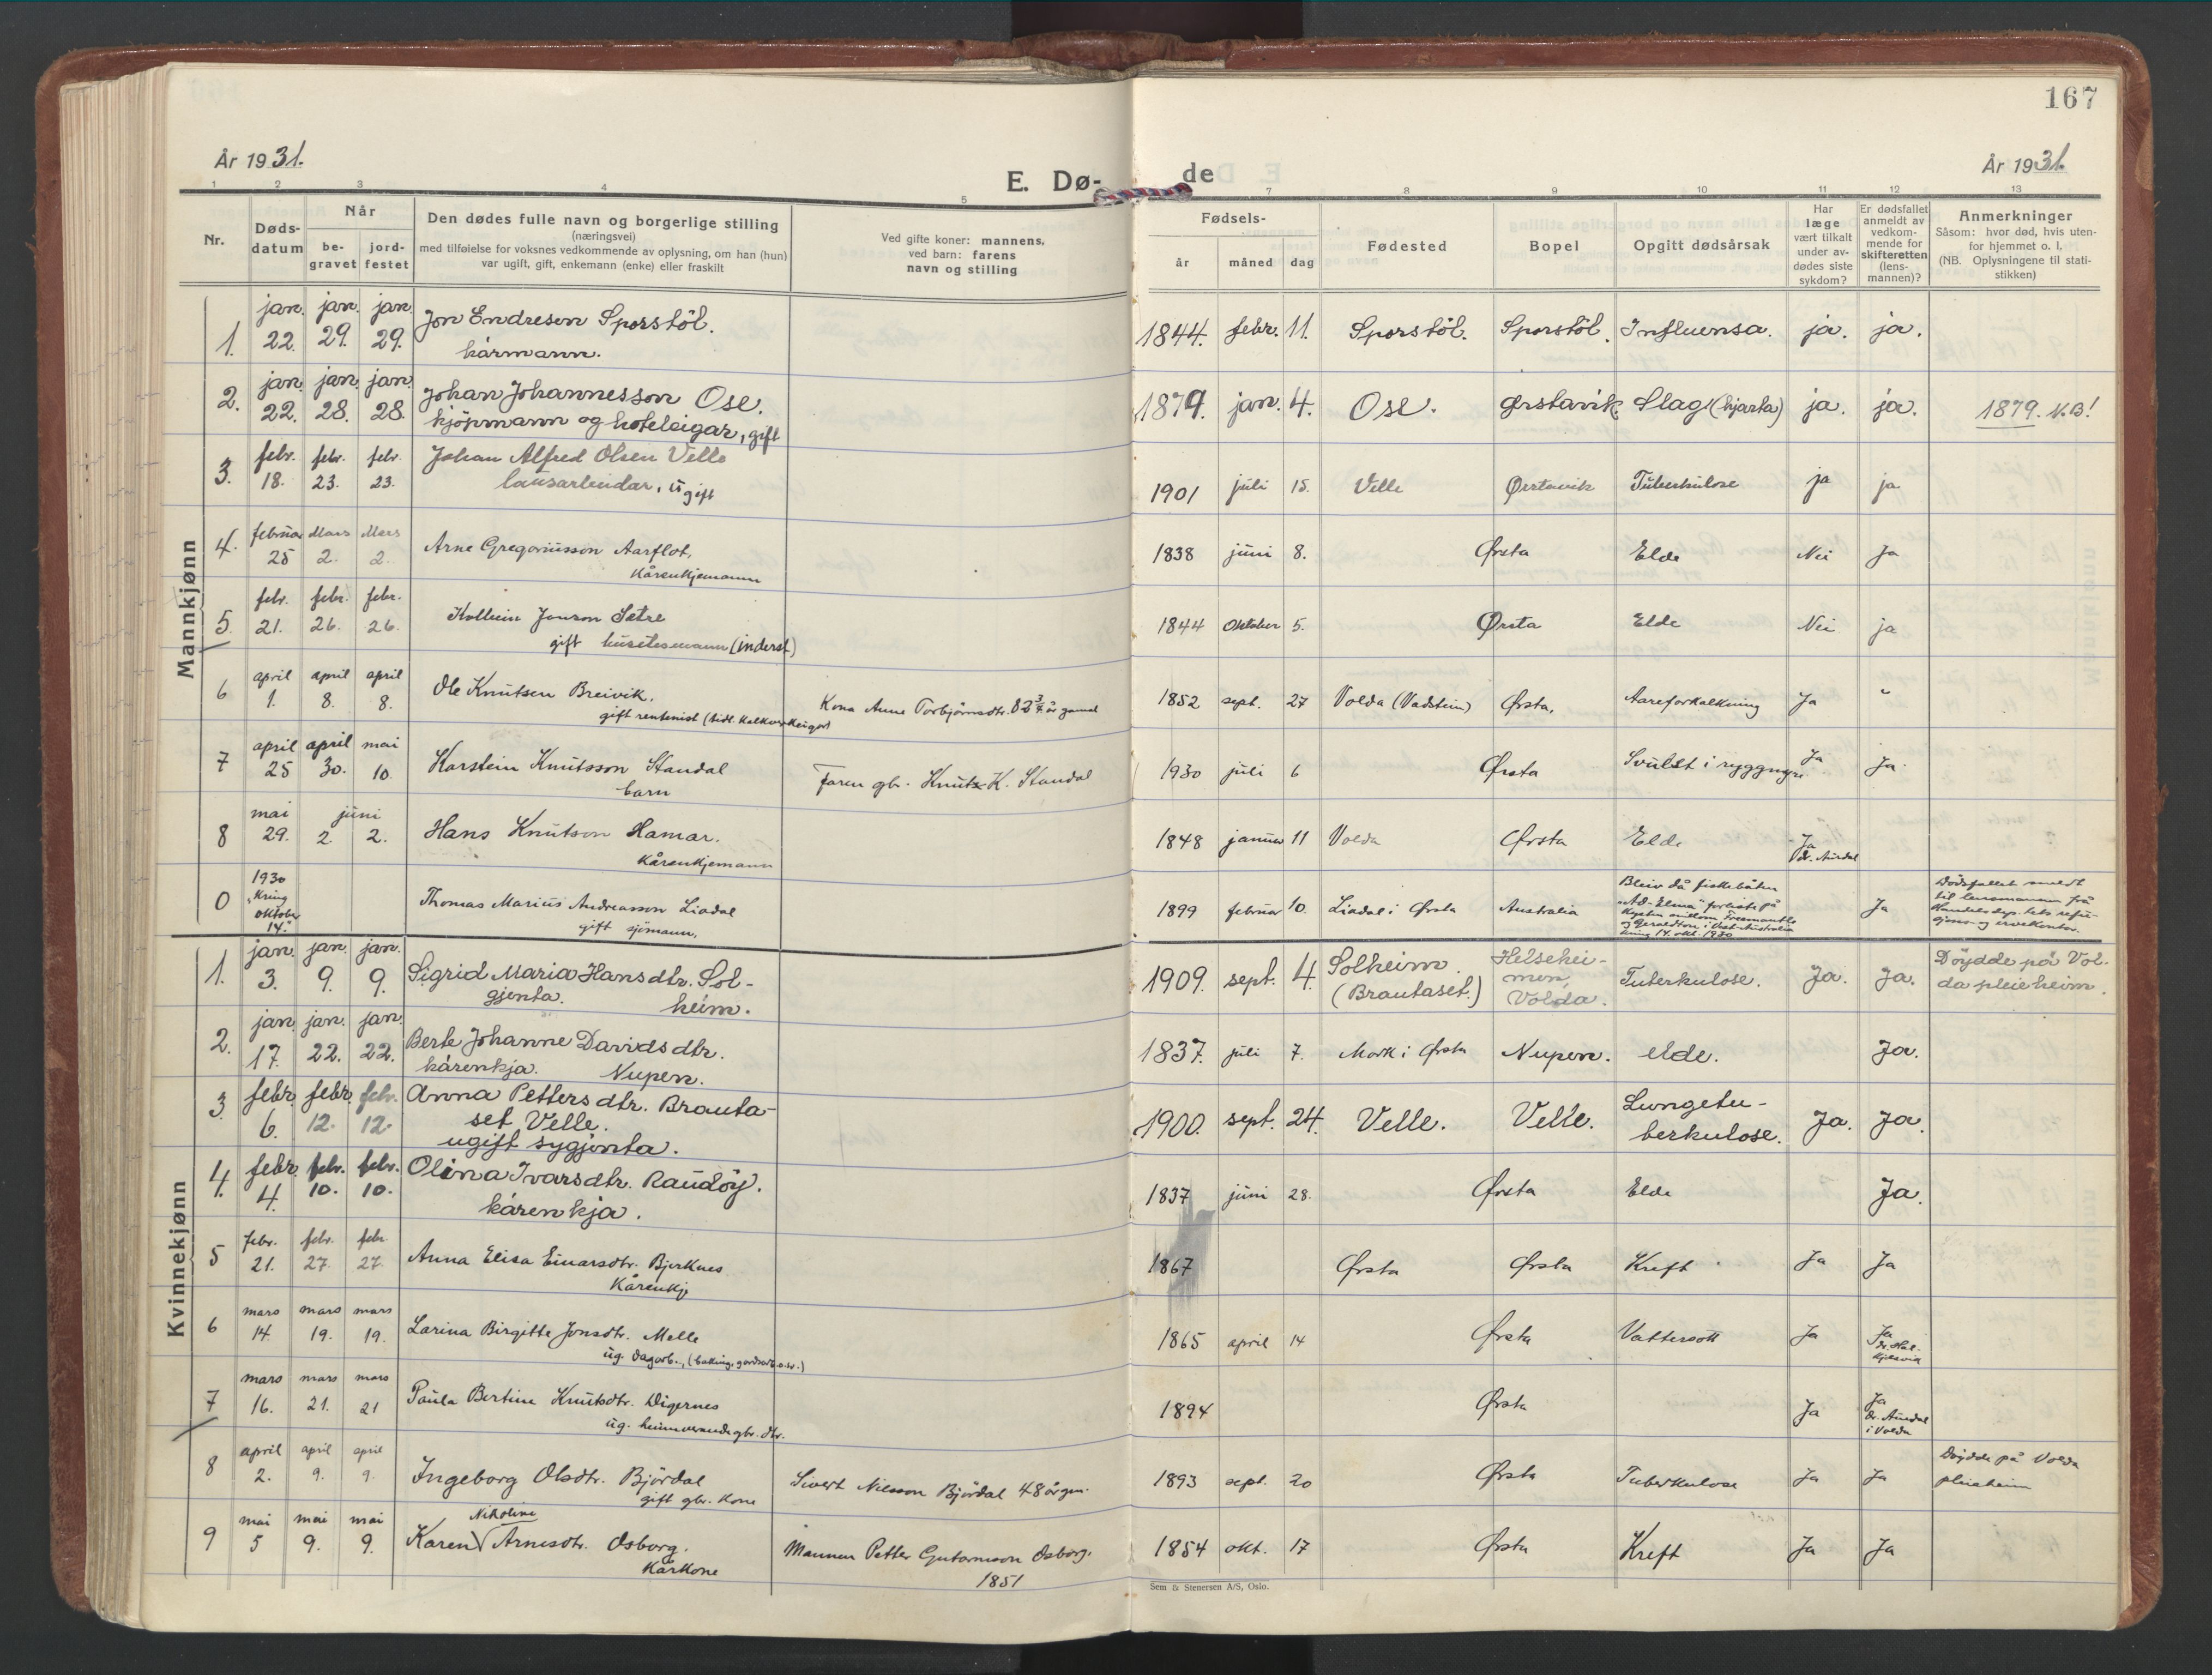 167
År 1931.
E. Dø-
de
År 1931.
1 2 3 4 5 7 8 9 10 11 12 13
Nr.
Døds-
datum
Når
be-
gravet
jord-
festet
Den dødes fulle navn og borgerlige stilling
(næringsvei)
med tilføielse for voksnes vedkommende av oplysning, om han (hun)
var ugift, gift, enkemann (enke) eller fraskilt
Ved gifte koner: mannens,
ved barn: farens
navn og stilling
Fødsels-
år måned dag
Fødested
Bopel
Opgitt dødsårsak
Har
læge
vært tilkalt
under av-
dødes siste
sykdom?
Er dødsfallet
anmeldt av
vedkom-
mende for
skifteretten
(lens-
mannen)?
Anmerkninger
Såsom: hvor død, hvis uten-
for hjemmet o. l.
(NB. Oplysningene til stati-
stikken)
Mannkjønn
jan. jan. jan.
1. 22. 29. 29. Jon Endreson Sporstöl. 1844. febr. 11. Sporstöl. Sporstöl. Influensa. ja. ja.
kårmann.
jan. jan. jan.
2. 22. 28. 28. Johan Johannesson Ose. 1879. jan. 4. Ose. Ørstavik. Slag (hjarta) ja. ja. 1879. N.B!
kjöpmann og hoteleigar, gift
febr. febr. febr.
3. 18. 23. 23. Johan Alfred Olsen Velle 1901 juli 15. Velle Ørstavik Tuberkulose ja ja
lausarbeidar, ugift
februar Mars Mars
4. 25 2. 2. Arne Gregoriusson Aarflot, 1838 juni 8. Ørsta Elde Nei Ja
Kårenkjemann
febr. febr. febr.
5. 21. 26. 26. Jonson Sætre 1844 Oktober 5. Ørsta Elde Nei ja
gift husetesmann (inderst)
april april april
6 1. 8. 8. Ole Knutsen Breivik. Kona Anne Torbjörnsdtr. 82 3/7 år gamal 1852 sept. 27 Volda (Vadstein) Ørsta, Aareforkalkning Ja "
gift rentenist (tidl. kalkverkeigar)
april april mai
7 25 30. 10. Karstein Knutsson Standal Faren gbr. Knut K. Standal 1930 juli 6 Ørsta Svulst i ryggnyre Ja Ja
barn
mai juni
8 29. 2. 2. Hans Knutson Hamar. 1848 januar 11 Volda Ørsta Elde Ja
Kårenkjemann dr. Aurdal
1930
Kring
oktober
14.
0 Thomas Marius Andreasson Liadal 1899 februar 10. Liadal i Ørsta Australia Ja
gift sjömann.
Bleiv då fiskebåten
"Ad-Elma" forliste på
Kysten millom Freemantle
og Geraldton i Vest-Australia
kring 14. okt. 1930
Dödsfallet meldt
til lensmannen frå
Handelsdep.tets
og ervekontor.
Kvinnekjønn
jan. jan. jan.
1. 3. 9. 9. Sigrid Maria Hansdtr. Sol- 1909. sept. 4. Solheim. Helsehei- Tuberkulose. Ja. Ja. Döydde på Vol-
gjenta. heim. (Brautaset.) men, Volda. da pleieheim.
jan. jan. jan.
2. 17. 22. 22. Berte Johanne Davidsdtr. 1837. juli 7. Mork i Ørsta Nupen. elde. Ja.
kårenkja. Nupen.
febr. febr. febr.
3. 6. 12. 12. Anna Pettersdtr. Brauta- 1900. sept. 24. Velle. Velle. Lungetu- Ja. Ja.
set Velle. berkulose.
ugift sygjenta.
febr. febr. febr.
4. 4. 10. 10. Olina Ivarsdtr. Raudöy. 1837 juni 28. Ørsta Elde Ja.
kårenkja.
febr. febr. febr
5 21. 27. 27. Anna Elisa Einarsdtr. Bjerknes 1867 Ørsta Ørsta Kreft Ja Ja
Kårenkj
mars mars mars
6 14. 19. 19. Larina Birgitte Jonsdtr. Melle 1865 april 14 Ørsta Vattersott Ja Ja
ug. dagarb., (baking, gardsarb. o.sv.)
mars mars mars
7 16. 21. 21 Paula Bertine Knutsdtr. Digernes 1894 Ørsta Ja Ja
ug. heimeverande gbr. dtr. dr. Aurdal
i Volda
april april april
8 2. 9. 9. Ingeborg Olsdtr. Björdal Sivert Nilsson Björdal 48 år gm. 1893 sept. 20 Ørsta Tuberkulose Ja Ja Döydde på Volda
gift gbr. kone pleieheim
mai mai mai Nikoline
9 5 9. 9. Karen Arnesdtr. Osborg. Mannen Petter Gutormson Osborg. 1854 okt. 17 Ørsta Kreft Ja Ja
Kårkone 1851
Sem & Stenersen A/S, Oslo.